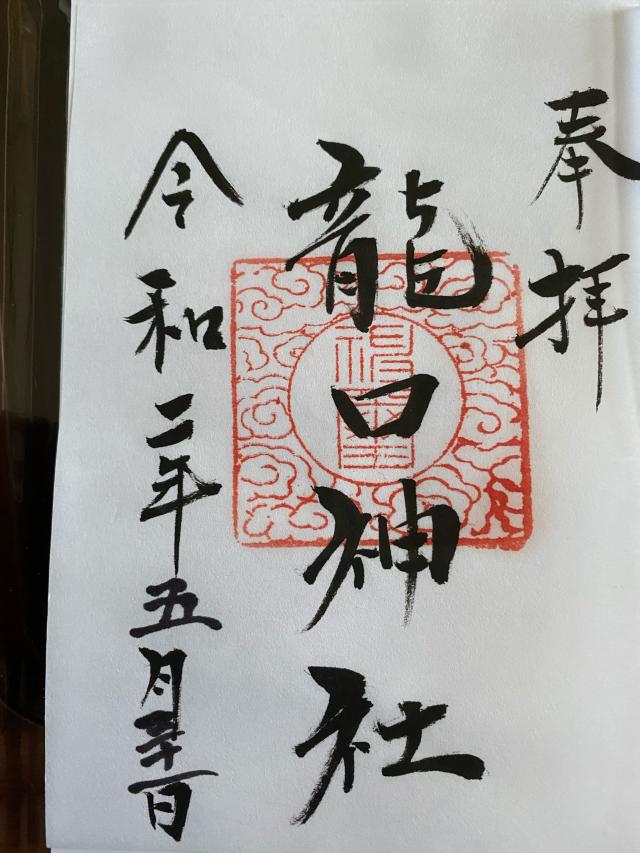 奉拝
龍口神社
令和二年五月三十一日